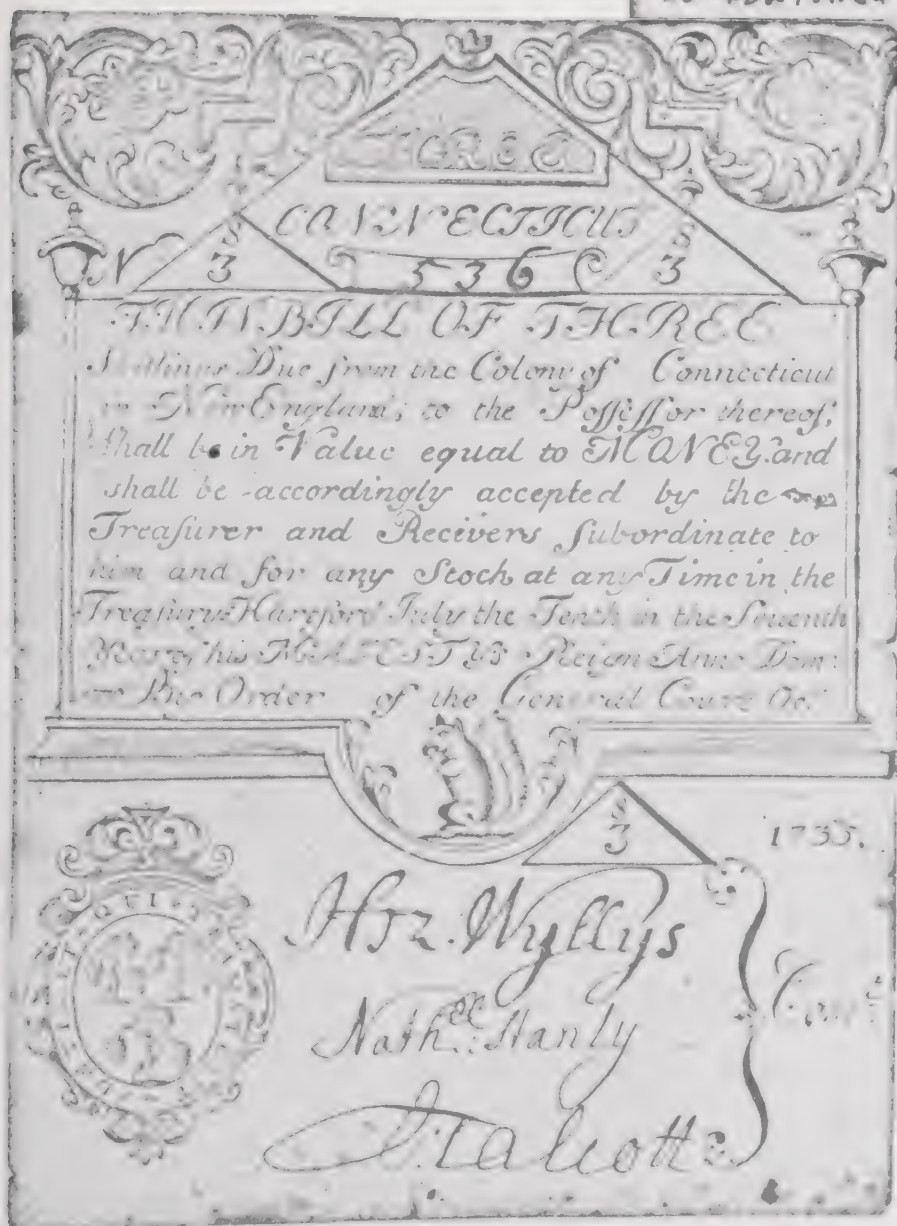 THREE
CONNECTICUT
N
s
3
536
s
3
THIS BILL OF THREE
Shillings Due from the Colony of Connecticut
in New England, to the Poſſeſſor thereof,
Shall be in Value equal to MONEY. and
shall be accordingly accepted by the
Treaſurer and Recivers Subordinate to
him and for any Stock at any Time in the
Treaſury Hartford July the Tenth in the Seventh
Year of his MAJESTYS Reign Anno Dom:
Order of the General Court
s
3
1733.
QUI
Hez. Wyllys
Nathll: Stanly
J Talcott
Comt